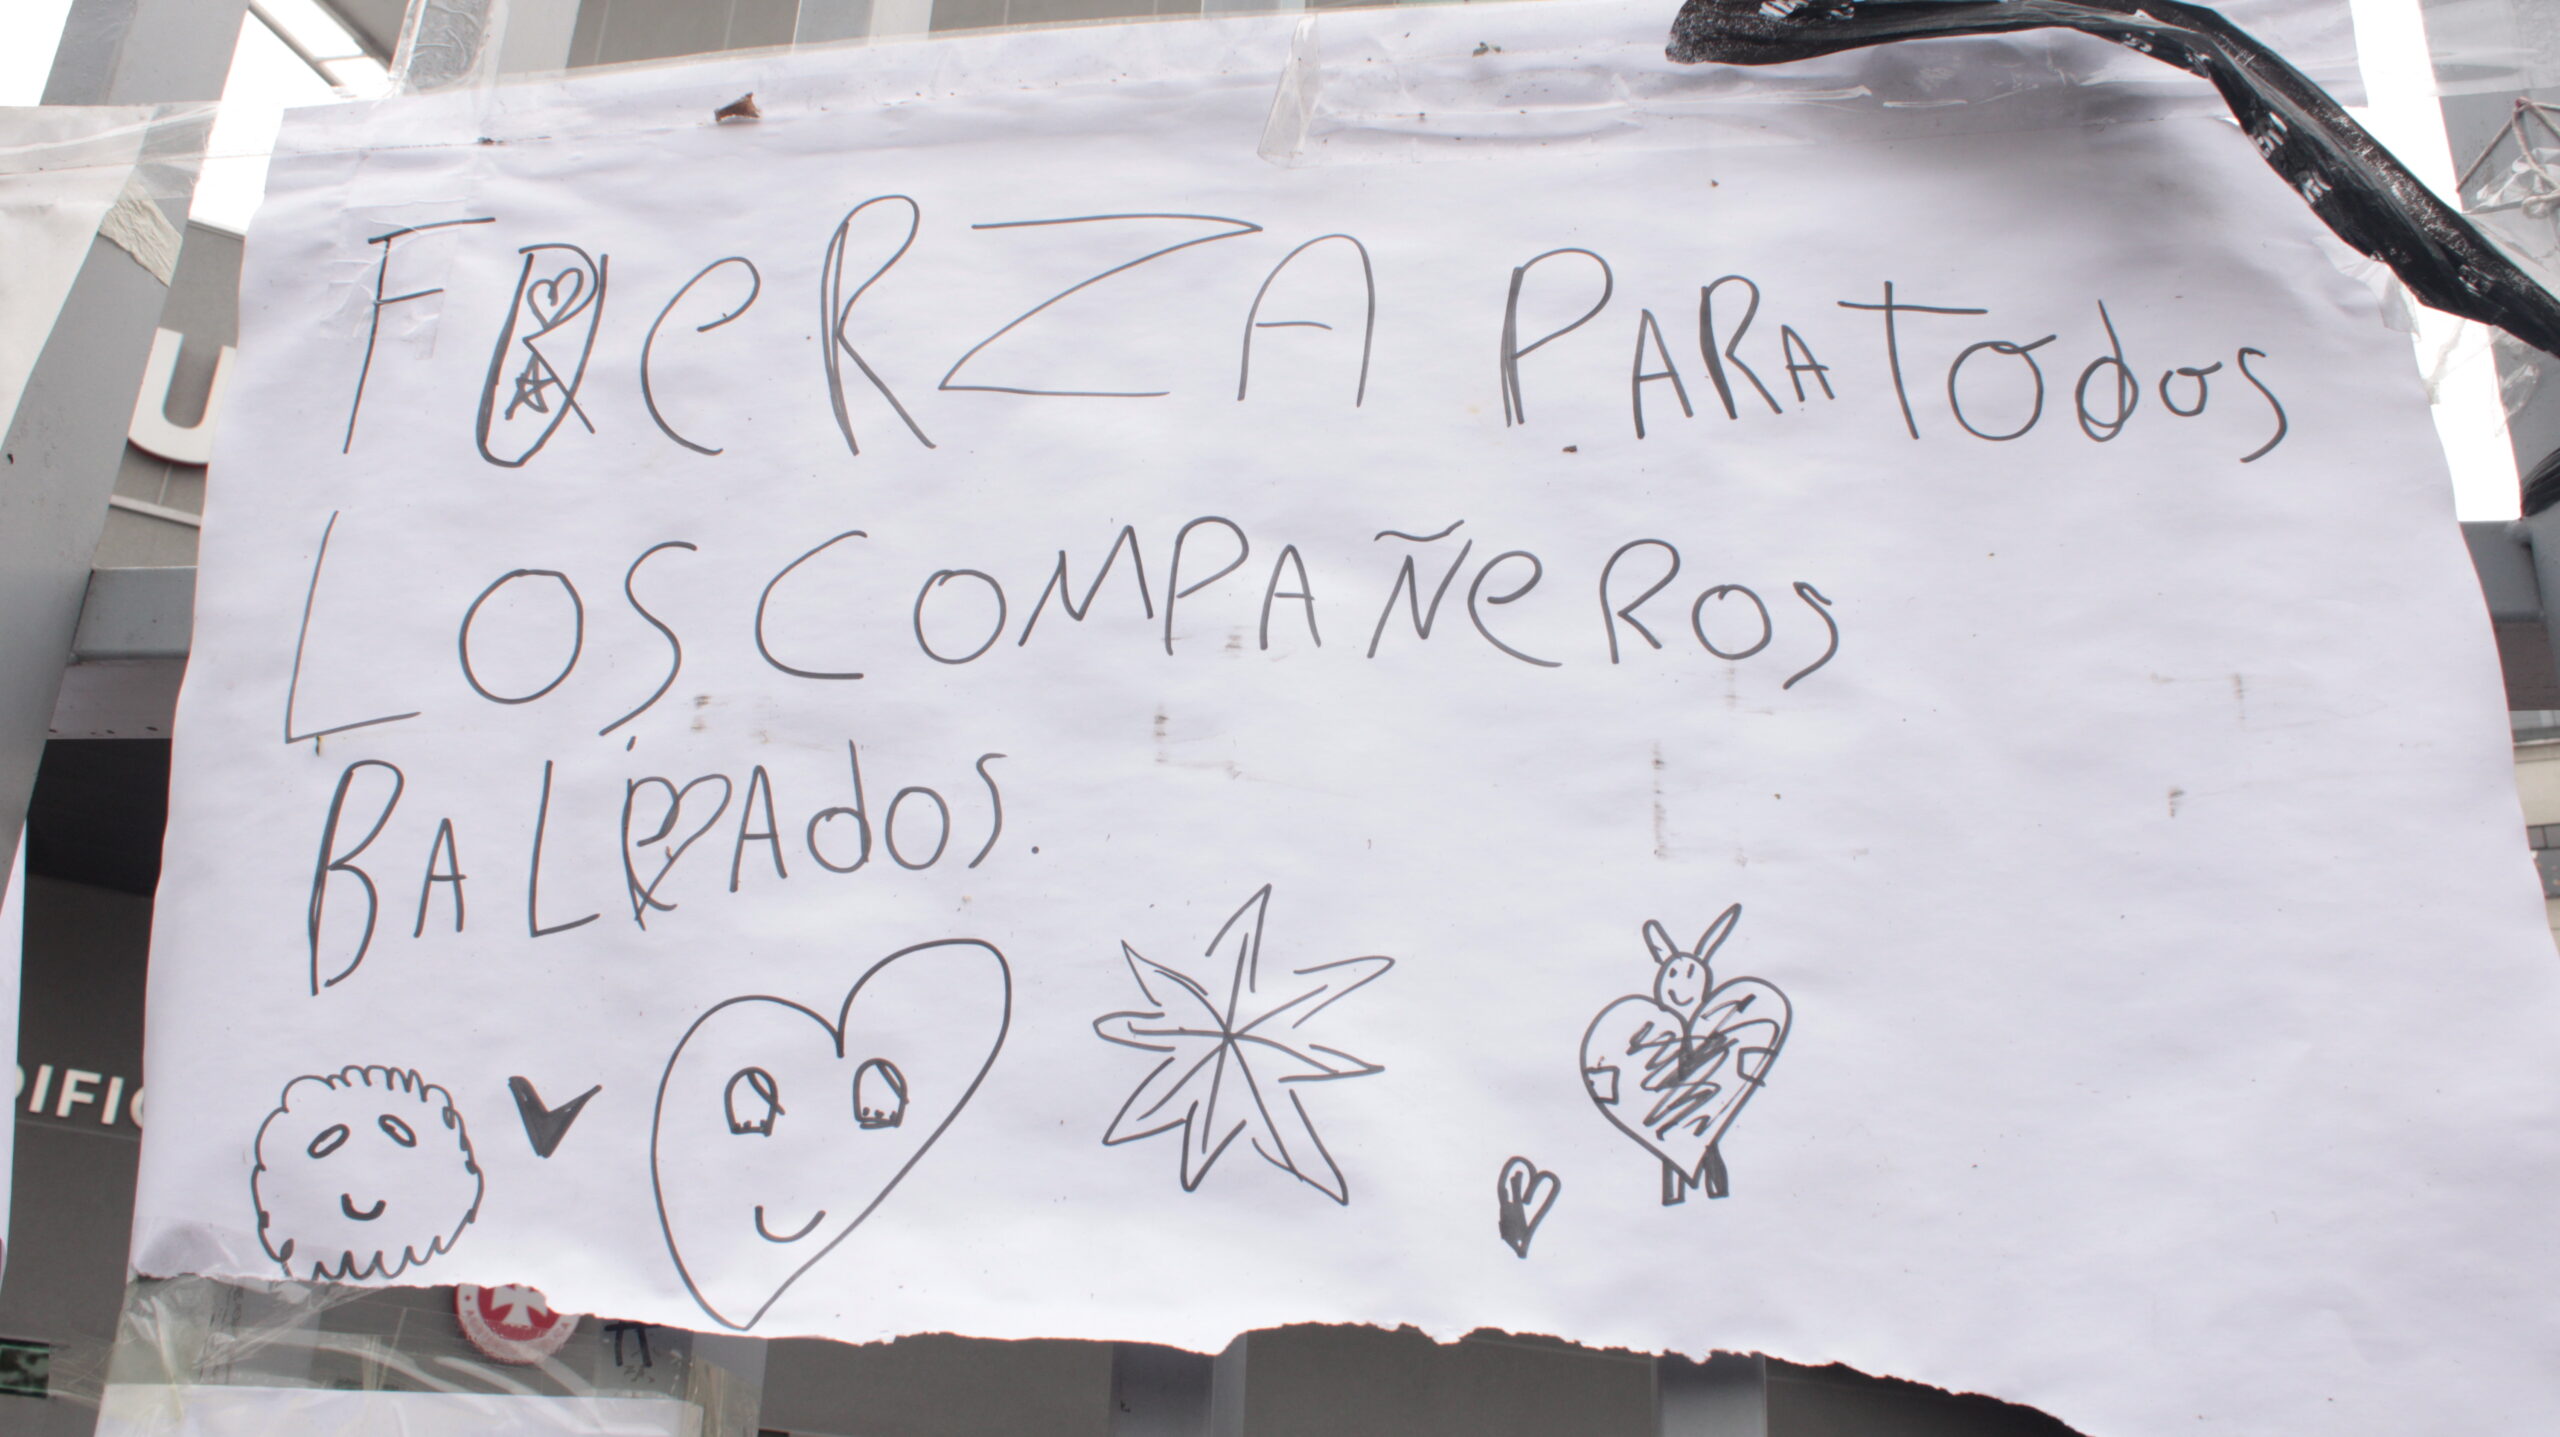 FUERZA PARA TODOS
LOS COMPAÑEROS
BALEADOS.
U
DIFIC